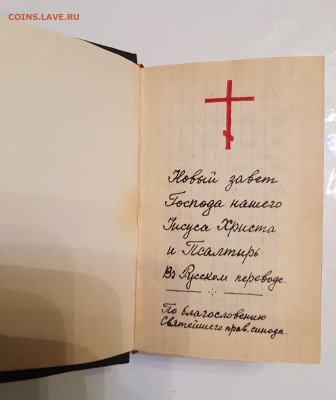 COINS.LAVE.RU
Новый завет
Господа нашего
Iисуса Христа
и Псалтирь
Во Русском переводе.
По благословению
Святейшего прав. синода.